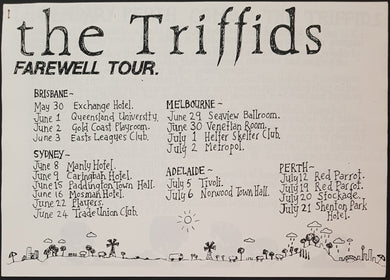 the Triffids
FAREWELL TOUR.
BRISBANE~
May 30 Exchange Hotel.
June 1 Queensland University.
June 2 Gold Coast Playroom.
June 3 Easts Leagues Club.
SYDNEY~
June 8 Manly Hotel.
June 9 Caringbah Hotel.
June 15 Paddington Town Hall.
June 16 Mosman Hotel.
June 22 Players.
June 24 Trade Union Club.
MELBOURNE~
June 29 Seaview Ballroom.
June 30 Venetian Room.
July 1 Helter Skelter Club.
July 2 Metropol.
ADELAIDE~
July 5 Tivoli.
July 6 Norwood Town Hall.
PERTH~
July 12 Red Parrot.
July 19 Red Parrot.
July 20 Stockage.
July 21 Shenton Park
Hotel.